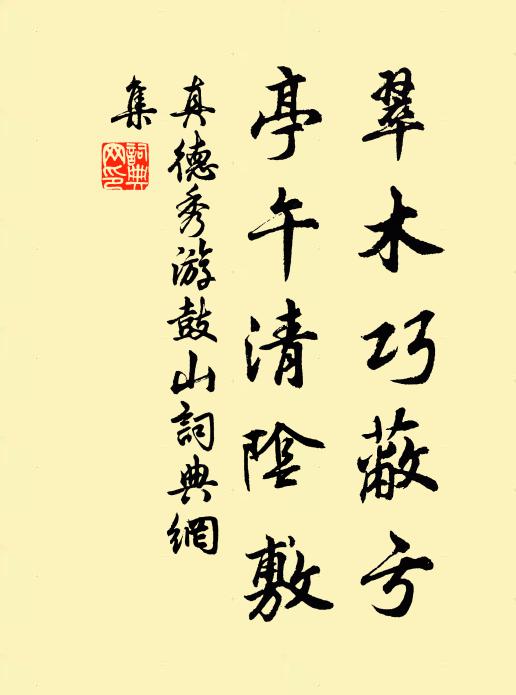 翠木巧蔽亏
亭午清陰敷
真德秀游鼓山詞典網
集
詞典網印